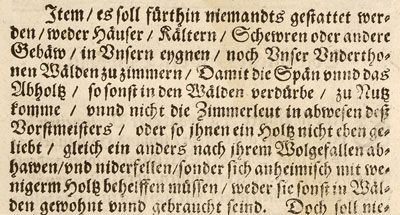 Item / es soll fürthin niemandts gestattet wer-
den / weder Häuser / Kältern / Schewren oder andere
Gebäw / in Vnsern eygnen / noch Vnser Vndertho-
nen Wälden zu zimmern / Damit die Spän vnnd das
Abholtz / so sonst in den Wälden verdürbe / zu Nutz
komme / vnnd nicht die Zimmerleut in abwesen deß
Vorstmeisters / oder so jhnen ein Holtz nicht eben ge-
liebt / gleich ein anders nach jhrem Wolgefallen ab-
hawen / vnd niderfellen / sonder sich anheimisch mit we-
nigerm Holtz behelffen müssen / weder sie sonst in Wäl-
den gewohnt vnnd gebraucht seind. Doch soll nie-